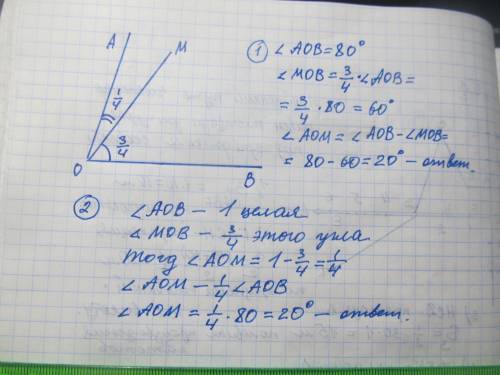 A
M
1/4
3/4
O
B
① ∠AOB = 80°
∠MOB = 3/4 · ∠AOB =
= 3/4 · 80 = 60°
∠AOM = ∠AOB - ∠MOB =
= 80 - 60 = 20° — ответ.
② ∠AOB — 1 целая
∠MOB — 3/4 этого угла
Тогд ∠AOM = 1 - 3/4 = 1/4
∠AOM — 1/4 ∠AOB
∠AOM = 1/4 · 80 = 20° — ответ.